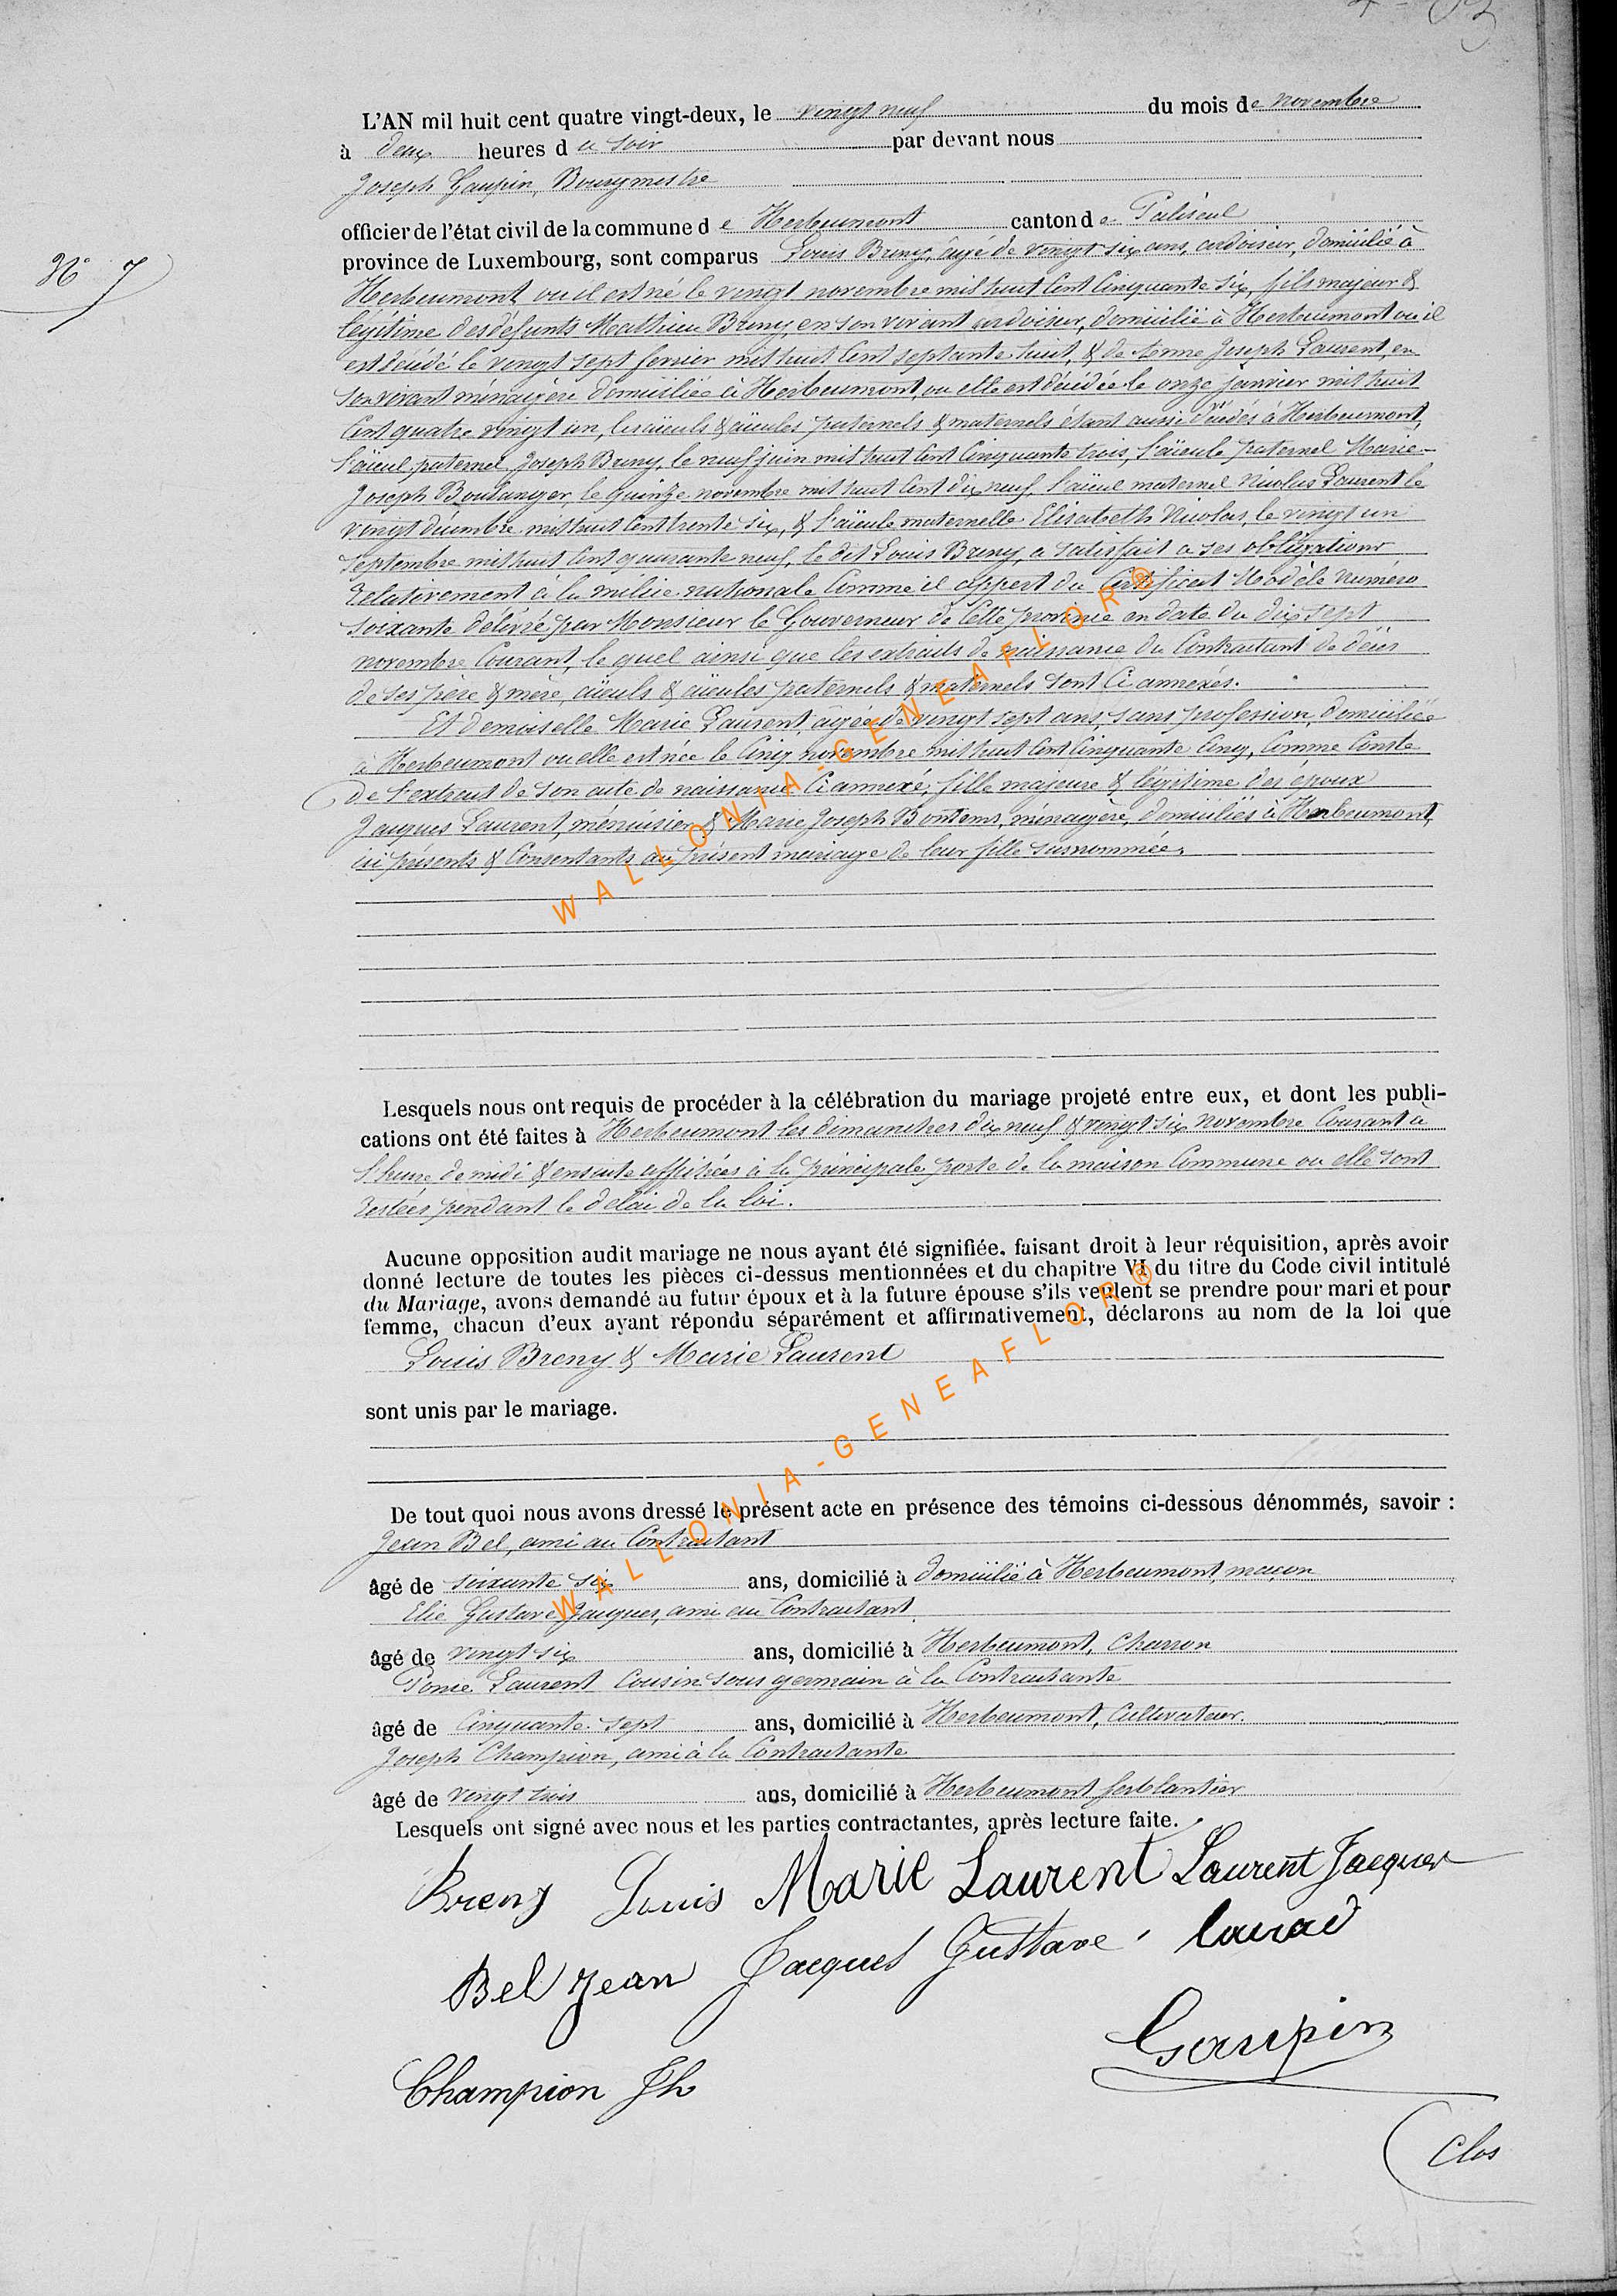 N° 7
L'AN mil huit cent quatre vingt-deux, le vingt neuf du mois de novembre
à deux heures du soir par devant nous
Joseph Gaupin, Bourgmestre
officier de l'état civil de la commune de Herbeumont canton de Paliseul
province de Luxembourg, sont comparus Louis Breny, âgé de vingt six ans, ardoisier, domicilié à
Herbeumont, ou il est né le vingt novembre mil huit cent cinquante six, fils majeur &
légitime des défunts Mathieu Breny, en son vivant ardoisier, domicilié à Herbeumont ou il
est décédé le vingt sept fevrier mil huit cent septante huit, & de Joseph Laurent, en
son vivant ménagère domiciliée à Herbeumont, ou elle est décédée le onze janvier mil huit
cent quatre vingt un, les aïeuls & aïeules paternels & maternels étant aussi décédés à Herbeumont,
l'aïeul paternel Joseph Breny, le neuf juin mil huit cent cinquante trois, l'aïeule paternel Marie-
Joseph Boulanger, le quinze novembre mil huit cent dix neuf, l'aïeul maternel Nicolas Laurent le
vingt décembre mil huit cent trente six, & l'aïeule maternelle Elisabeth Nicolas, le vingt un
septembre mil huit cent quarante neuf, le dit Louis Breny, a satisfait a ses obligations
relativement à la milice nationale comme il appert du certificat Modèle numéro
soixante délivré par Monsieur le Gouverneur de cette province en date du dix sept
novembre courant, le quel ainsi que les extraits de naissance du contractant de décès
de ses père & mère, aïeuls & aïeules paternels & maternels sont ci annexés.
Et demoiselle Marie Laurent, âgée de vingt sept ans, sans profession, domiciliée
à Herbeumont ou elle est née le cinq novembre mil huit cent cinquante cinq, comme conste
de l'extrait de son acte de naissance ci annexé, fille majeure & légitime des époux
Jacques Laurent, ménuisier & Marie Joseph Bontems, ménagère, domiciliés à Herbeumont,
ici présents & consentants au présent mariage de leur fille susnommée,
Lesquels nous ont requis de procéder à la célébration du mariage projeté entre eux, et dont les publi-
cations ont été faites à Herbeumont les dimanches dix neuf & vingt six novembre courant à
l'heure de midi & ensuite affichées à la principale porte de la maison commune ou elle sont
restées pendant le délai de la loi.
Aucune opposition audit mariage ne nous ayant été signifiée, faisant droit à leur réquisition, après avoir
donné lecture de toutes les pièces ci-dessus mentionnées et du chapitre VI du titre du Code civil intitulé
du Mariage, avons demandé au futur époux et à la future épouse s'ils veulent se prendre pour mari et pour
femme, chacun d'eux ayant répondu séparément et affirmativement, déclarons au nom de la loi que
Louis Breny & Marie Laurent
sont unis par le mariage.
De tout quoi nous avons dressé le présent acte en présence des témoins ci-dessous dénommés, savoir :
Jean Bel, ami au contractant
âgé de soixante six ans, domicilié à domicilié à Herbeumont, macon
Elie Gustave Jacques, ami au contractant
âgé de vingt six ans, domicilié à Herbeumont, charron
Laurent cousin sous germain à la contractante
âgé de cinquante sept ans, domicilié à Herbeumont, cultivateur.
Joseph Champion, ami à la contractante
âgé de vingt trois ans, domicilié à Herbeumont ferblantier
Lesquels ont signé avec nous et les parties contractantes, après lecture faite.
Breny Louis Marie Laurent Laurent Jacques
Bel Jean Jacques Gustave
Gaupin
Champion Jh
Clos
WALLONIA-GENEAFLOR®
WALLONIA-GENEAFLOR®